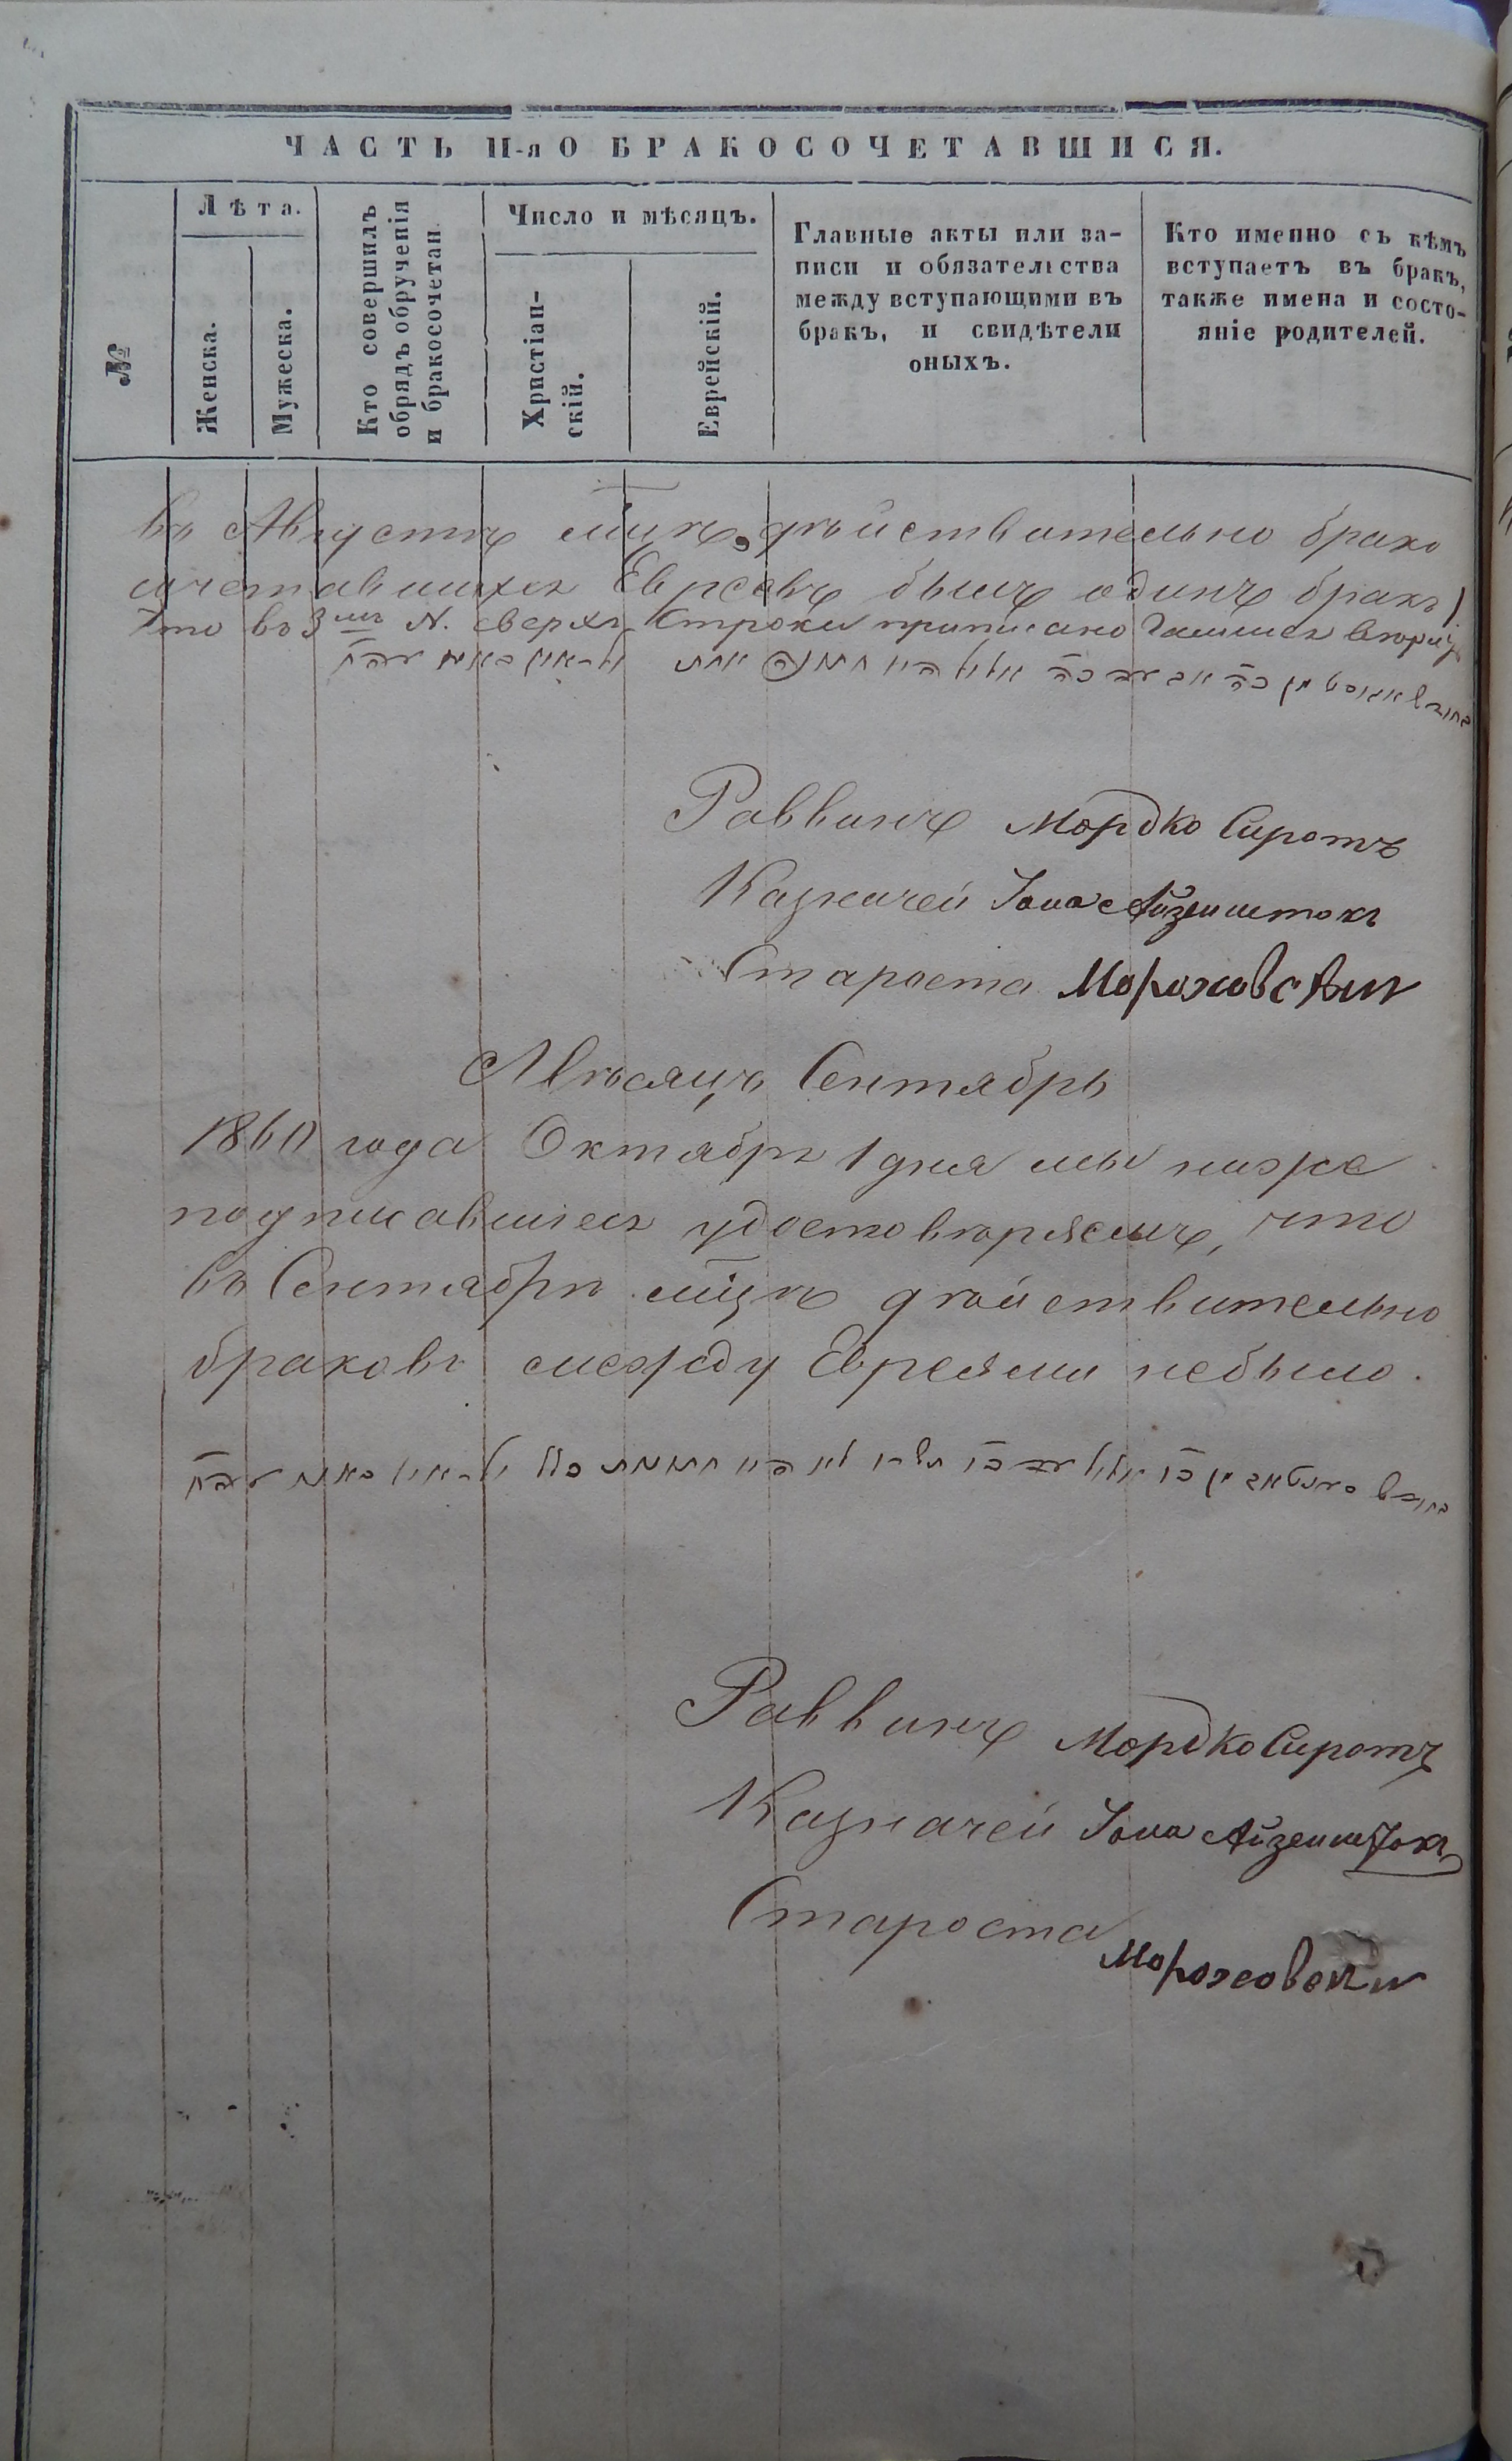 ЧАСТЬ II-я О БРАКОСОЧЕТАВШИСЯ.
№
Лѣта.
Женска.
Мужеска.
Кто совершилъ
обрядъ обрученія
и бракосочетан.
Число и мѣсяцъ.
Христіан-
скій.
Еврейскій.
Главные акты или за-
писи и обязательства
между вступающими въ
бракъ, и свидѣтели
оныхъ.
Кто именно съ кѣмъ
вступаетъ въ бракъ,
также имена и состо-
яніе родителей.
въ Августѣ мцѣ, дѣйствительно брако
сочетавшихся Евреевъ былъ одинъ бракъ
что въ 3мъ N. сверхъ строки приписано
Раввинъ Мордко Сиротъ
Казначей Іона Айзенштокъ
Староста Мороховский
Мѣсяцъ Сентябрь
1860 года Октября 1 дня мы ниже
подписавшіеся удостовѣряемъ, что
въ Сентябрѣ мцѣ дѣйствительно
браковъ между Евреями небыло.
Раввинъ Мордко Сиротъ
Казначей Іона Айзенштокъ
Староста
Мороховский